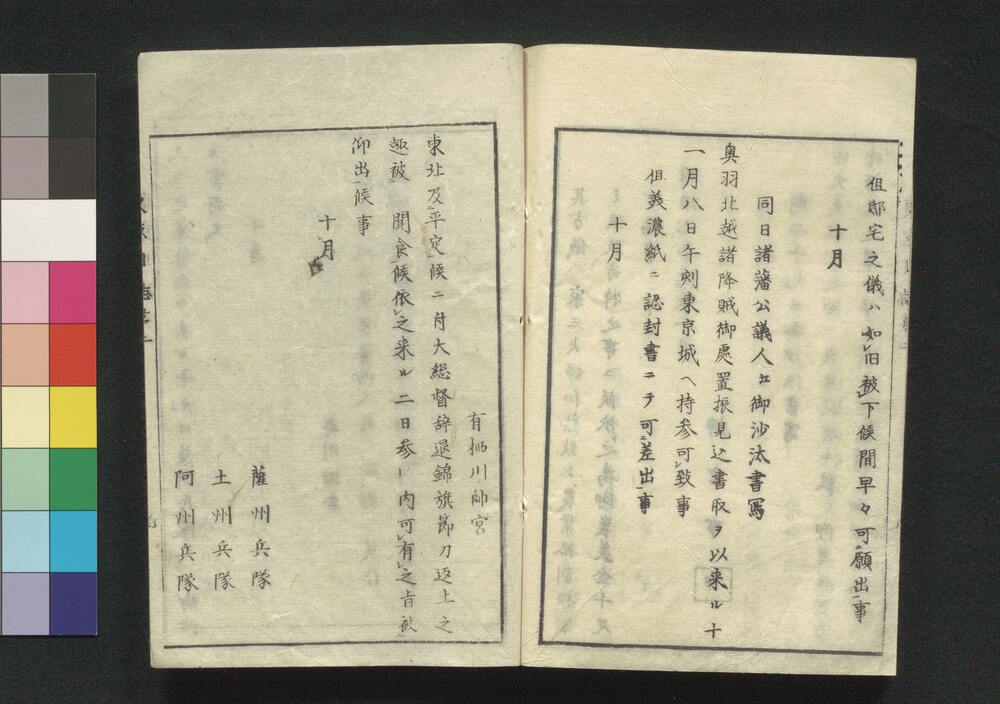 但邸宅之儀ハ如レ旧被レ下候間早々可願出事
十月
同日諸藩公議人江御沙汰書写
奥羽北越諸降賊御處置振見込書取ヲ以来ル十
一月八日午刻東京城ヘ持参可レ致事
但美濃紙ニ認封書ニテ可差出事
十月
有栖川帥宮
東北及平定候ニ付大総督辞退錦旗節刀返上之
趣被聞食候依レ之来ル二日参内可レ有レ之旨被
仰出候事
十月
薩州兵隊
土州兵隊
阿州兵隊